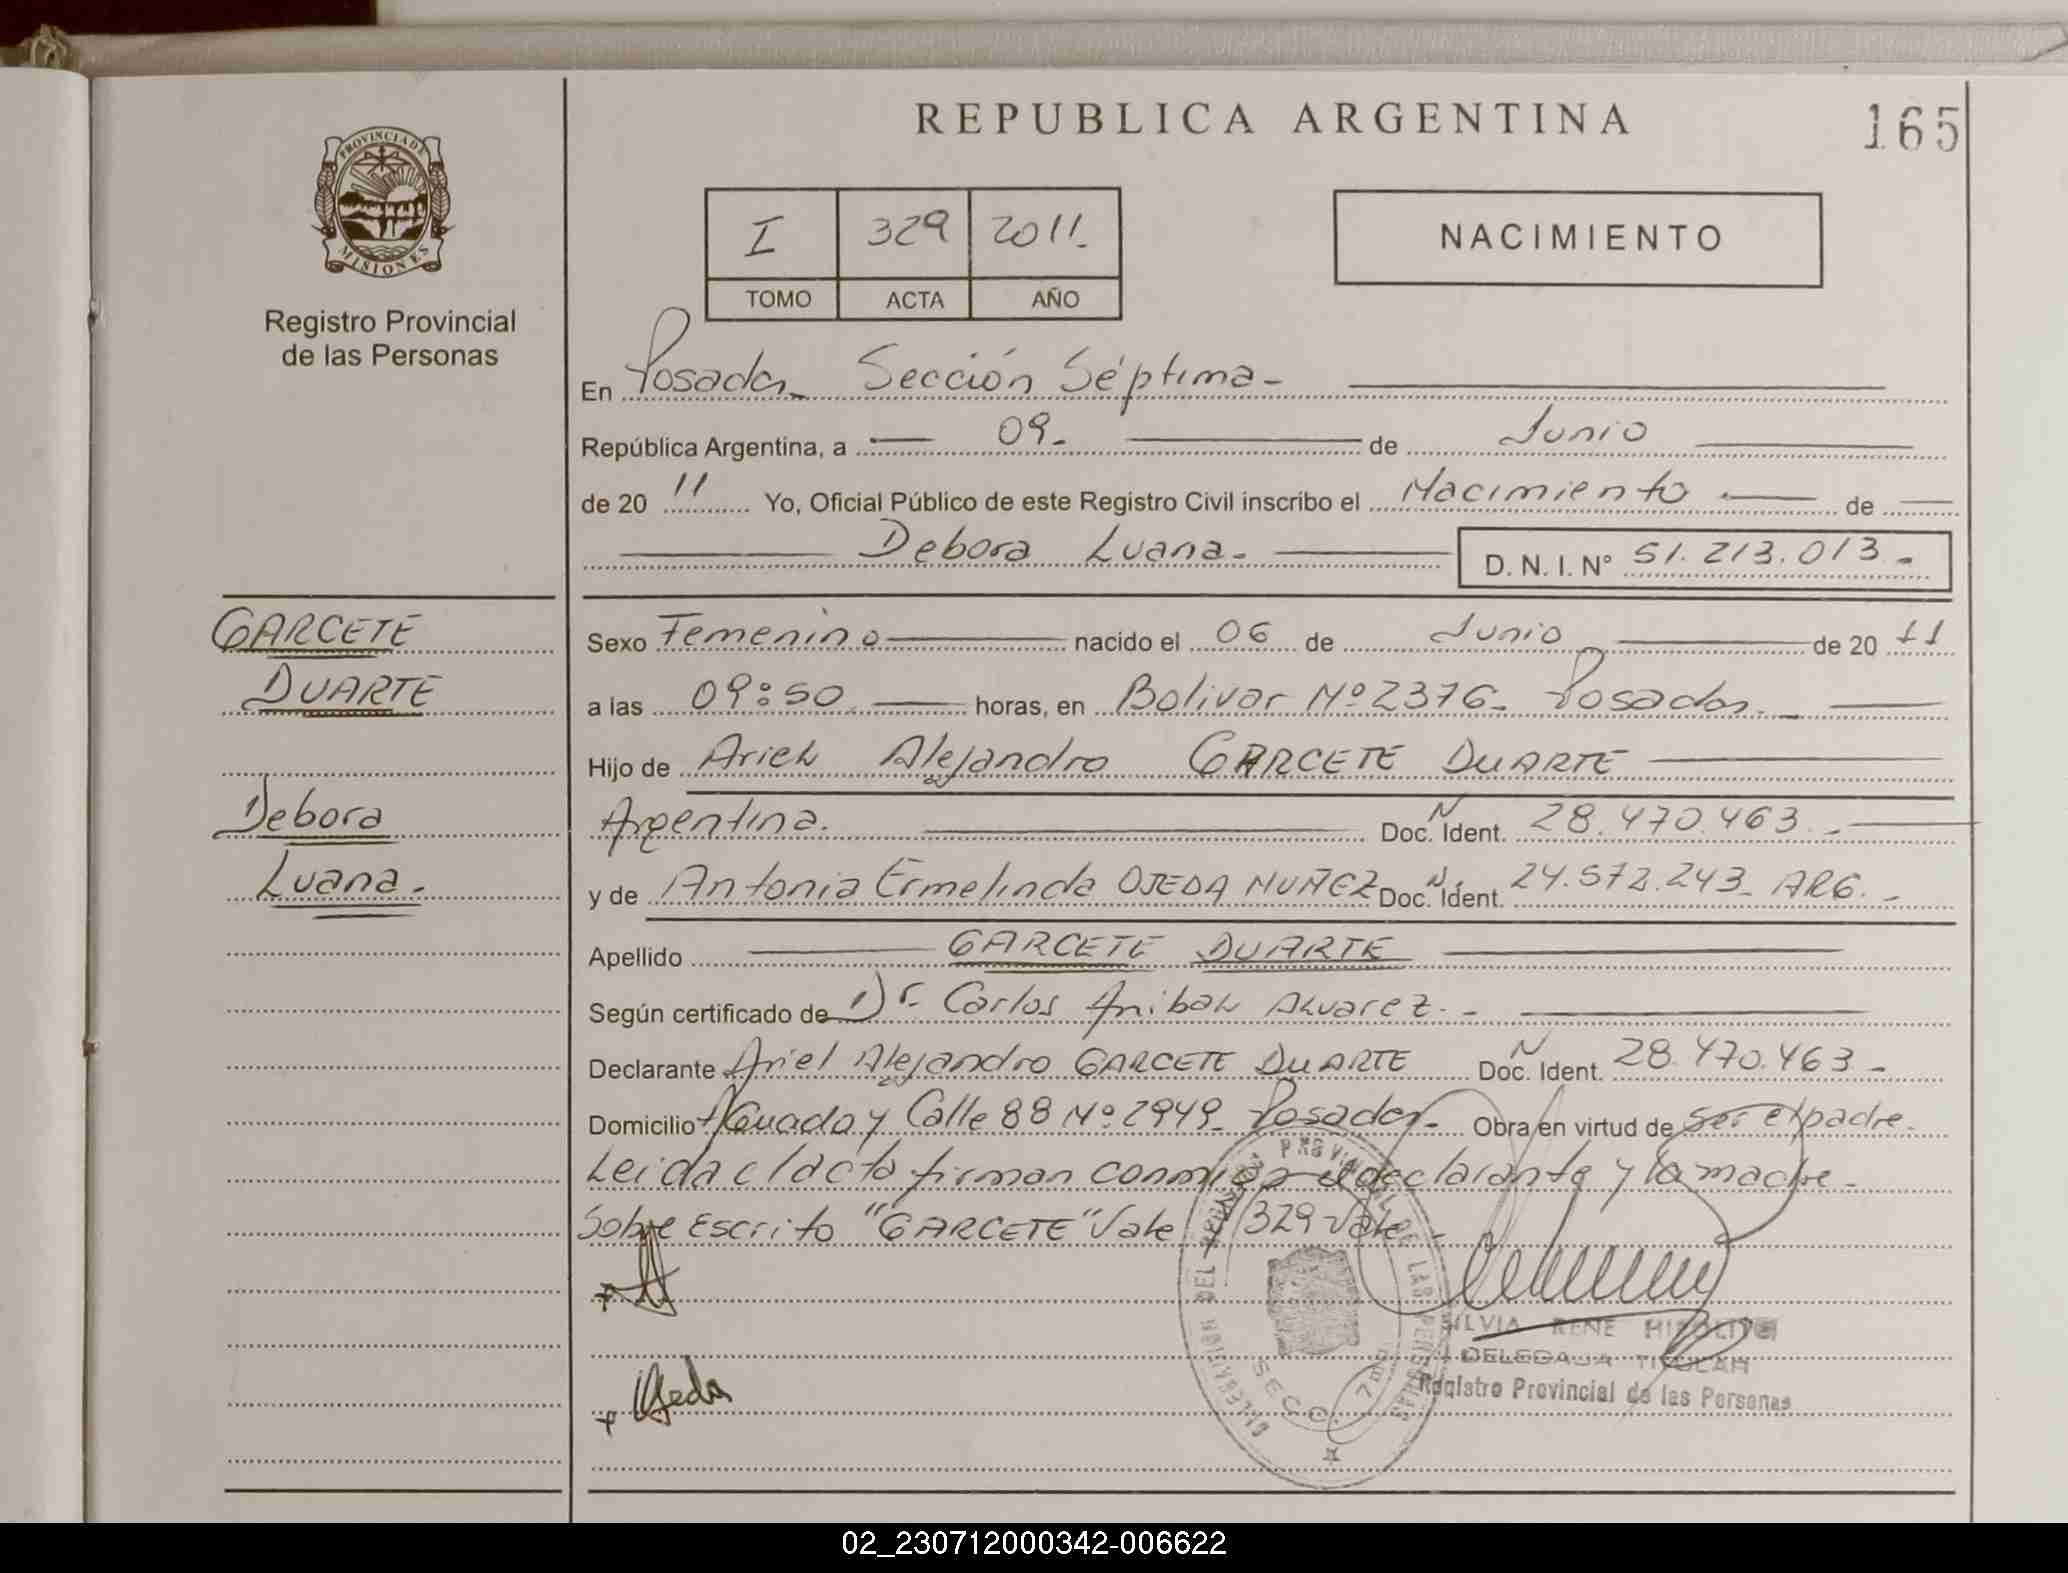 REPUBLICA ARGENTINA
165
PROVINCIA DE
MISIONES
Registro Provincial
de las Personas
I 329 2011.
TOMO ACTA AÑO
NACIMIENTO
En Posadas Sección Séptima-
República Argentina, a 09. de Junio
de 20 11 Yo, Oficial Público de este Registro Civil inscribo el Nacimiento de
Debora Luana. D. N. I. N° 51.213.013.-
GARCETE
DUARTE
Debora
Luana.-
Sexo Femenino nacido el 06 de Junio de 20 11
a las 09:50 horas, en Bolivar Nº 2376- Posadas.-
Hijo de Ariel Alejandro GARCETE DUARTE
Argentina. Doc. N Ident. 28.470.463.-
y de Antonia Ermelinda OJEDA NUÑEZ Doc. N Ident. 24.572.243- ARG.-
Apellido GARCETE DUARTE
Según certificado de Dr. Carlos Anibal Alvarez.-
Declarante Ariel Alejandro GARCETE DUARTE Doc. N Ident. 28.470.463-
Domicilio y Calle 88 Nº 2949- Posadas- Obra en virtud de ser el padre-
Leida el acta firman conmigo el declarante y la madre-
Sobre Escrito "GARCETE" Vale 329 Vale-
Ojeda
DEL REGISTRO PROVINCIAL DE LAS PERSONAS
SECC. 7ma
SILVIA RENE HIPOLITO
DELEGADA TITULAR
Registro Provincial de las Personas
02_230712000342-006622